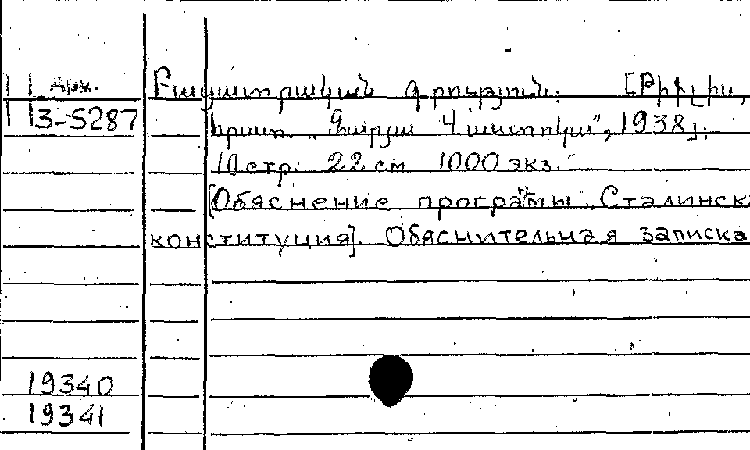 Арм.
Բացատրական գրություն. [Թիֆլիս,
13-5287
հրատ. „Զարյա Վոստոկա”, 1938].
10 стр. 22 см 1000 экз.
[Обяснение програмы „Сталинск
конституция]. Обяснительная записка
19340
19341